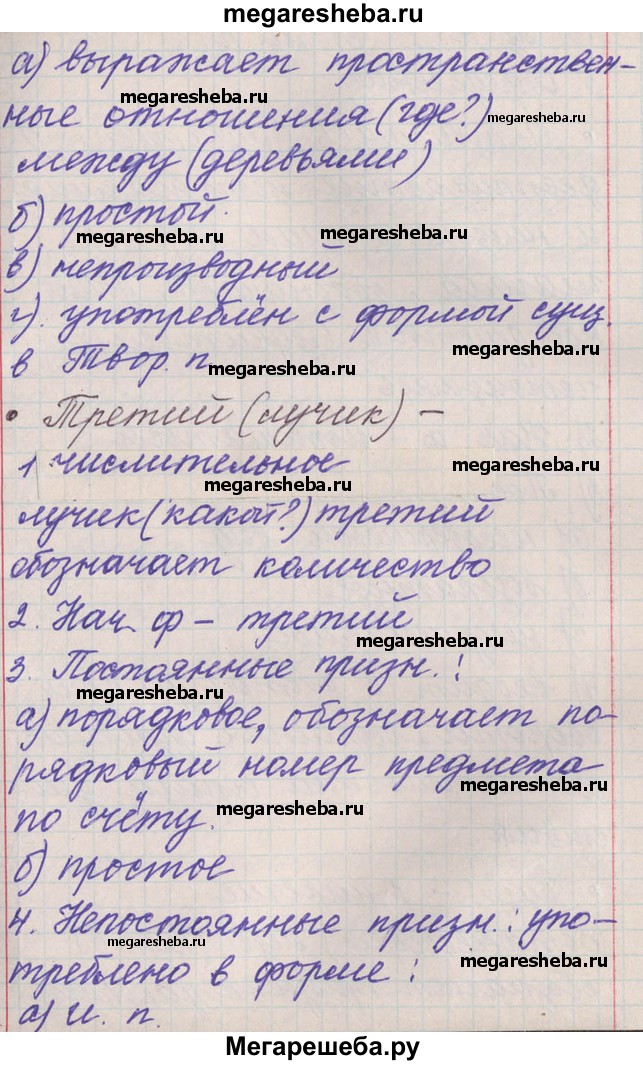 megaresheba.ru
а) выражает пространствен-
megaresheba.ru
ные отношения (где?)
megaresheba.ru
между (деревьями)
б) простой.
megaresheba.ru
megaresheba.ru
в) непроизводный
г). употреблён с формой сущ.
в Твор. п.
megaresheba.ru
megaresheba.ru
• Третий (лучик) –
1 числительное
megaresheba.ru
megaresheba.ru
лучик (какой?) третий
обозначает количество
2. Нач. ф – третий
megaresheba.ru
3. Постоянные призн. :
megaresheba.ru
а) порядковое, обозначает по-
рядковый номер предмета
megaresheba.ru
по счёту.
megaresheba.ru
б) простое
4. Непостоянные призн. : упо-
megaresheba.ru
треблено в форме :
megaresheba.ru
а) И. п.
Мегарешеба.ру